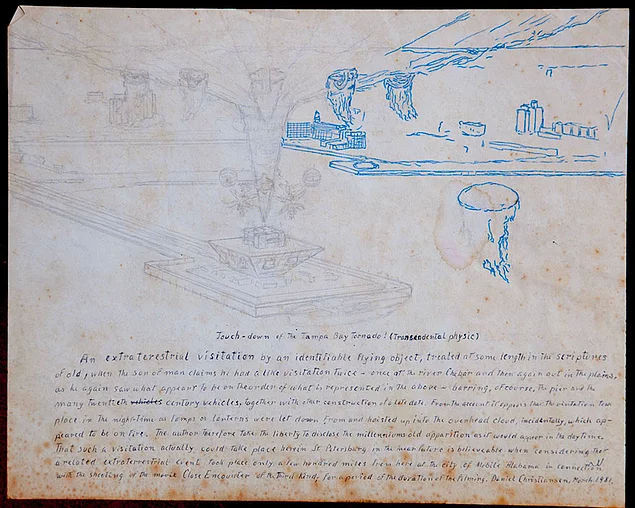 Touch-down of the Tampa Bay Tornado! (Transendental physic)
An extraterestrial visitation by an identifiable flying object, treated at some length in the scriptures
of old, when the son of man claims he had a like visitation twice - once at the river Chebar and then again out in the plains,
as he again saw what appeart to be on the order of what is represented in the above - barring, of course, the pier and the
many twentieth vehicles century vehicles, together with other construction of a late date. From the account it appears that the visitation took
place in the night-time as lamps or lanterns were let down from and hoisted up into the overhead cloud, incidentally, which ap-
peared to be on fire. The author therefore take the liberty to disclose the millenniums old apparition as it would appear in the daytime.
That such a visitation actually could take place herein St Petersburg in the near future is believeable when considering that
a related extraterrestrial event took place only a few hundred miles from here at the city of Mobile Alabama in connection
with the shooting of the movie Close Encounter of the Third Kind, for a period of the duration of the filming. Daniel Christiansen, March 1981.